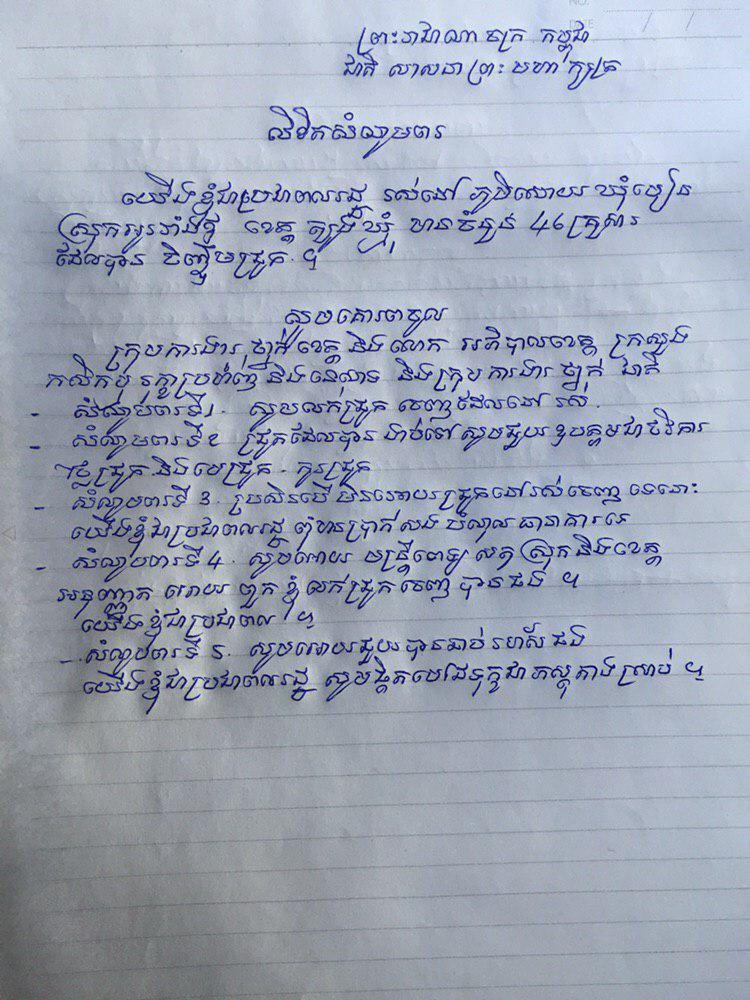 ព្រះរាជាណាចក្រ កម្ពុជា
ជាតិ សាសនា ព្រះ មហា ក្សត្រ
លិខិតសំណូមពរ
យើងខ្ញុំជាប្រជាពលរដ្ឋ រស់នៅ ភូមិស្វាយ ឃុំមៀន
ស្រុកអូររាំងឪ ខេត្ត ត្បូងឃ្មុំ មានចំនួន 46 គ្រួសារ
ដែលបាន ចិញ្ចឹមជ្រូក ។
សូមគោរពចូល
ក្រុមការងារ ថ្នាក់ខេត្ត និង លោក អភិបាលខេត្ត ក្រសួង
កសិកម្ម រុក្ខាប្រមាញ់ និងនេសាទ និងក្រុម ការងារ ថ្នាក់ ជាតិ
- សំណូមពារទី1. សូមលក់ជ្រូក ចេញដែលនៅ រស់.
- សំណូមពារទី2 ជ្រូកដែលបាន ងាប់ទៅសូមជួយ ឧបត្ថមជាថវិការ
ថ្លៃជ្រូក និងមេជ្រូក. កូនជ្រូក
- សំណូមពារទី 3. ប្រសិនបើ មិនអោយជ្រូកនៅរស់ចេញ ទេនោះ
យើងខ្ញុំជាប្រជាពលរដ្ឋ ពុំមានប្រាក់សង បំណុល ធានាគារទេ
- សំណូមពារទី 4. សូមអោយ មន្ត្រីពេទ្យ សត្វ ស្រុក និងខេត្ត
អនុញ្ញាត អោយ ពួក ខ្ញុំ លក់ជ្រូក ចេញ បាន ផង ។
យើងខ្ញុំជាប្រជាពល ។
- សំណូមពារទី 5. សូមអោយជួយ បានឆាប់ រហ័ស ផង
យើងខ្ញុំជាប្រជាពលរដ្ឋ សូមផ្ដិតមេដៃទុក្ខជា ភស្តុតាង ស្រាប់ ។